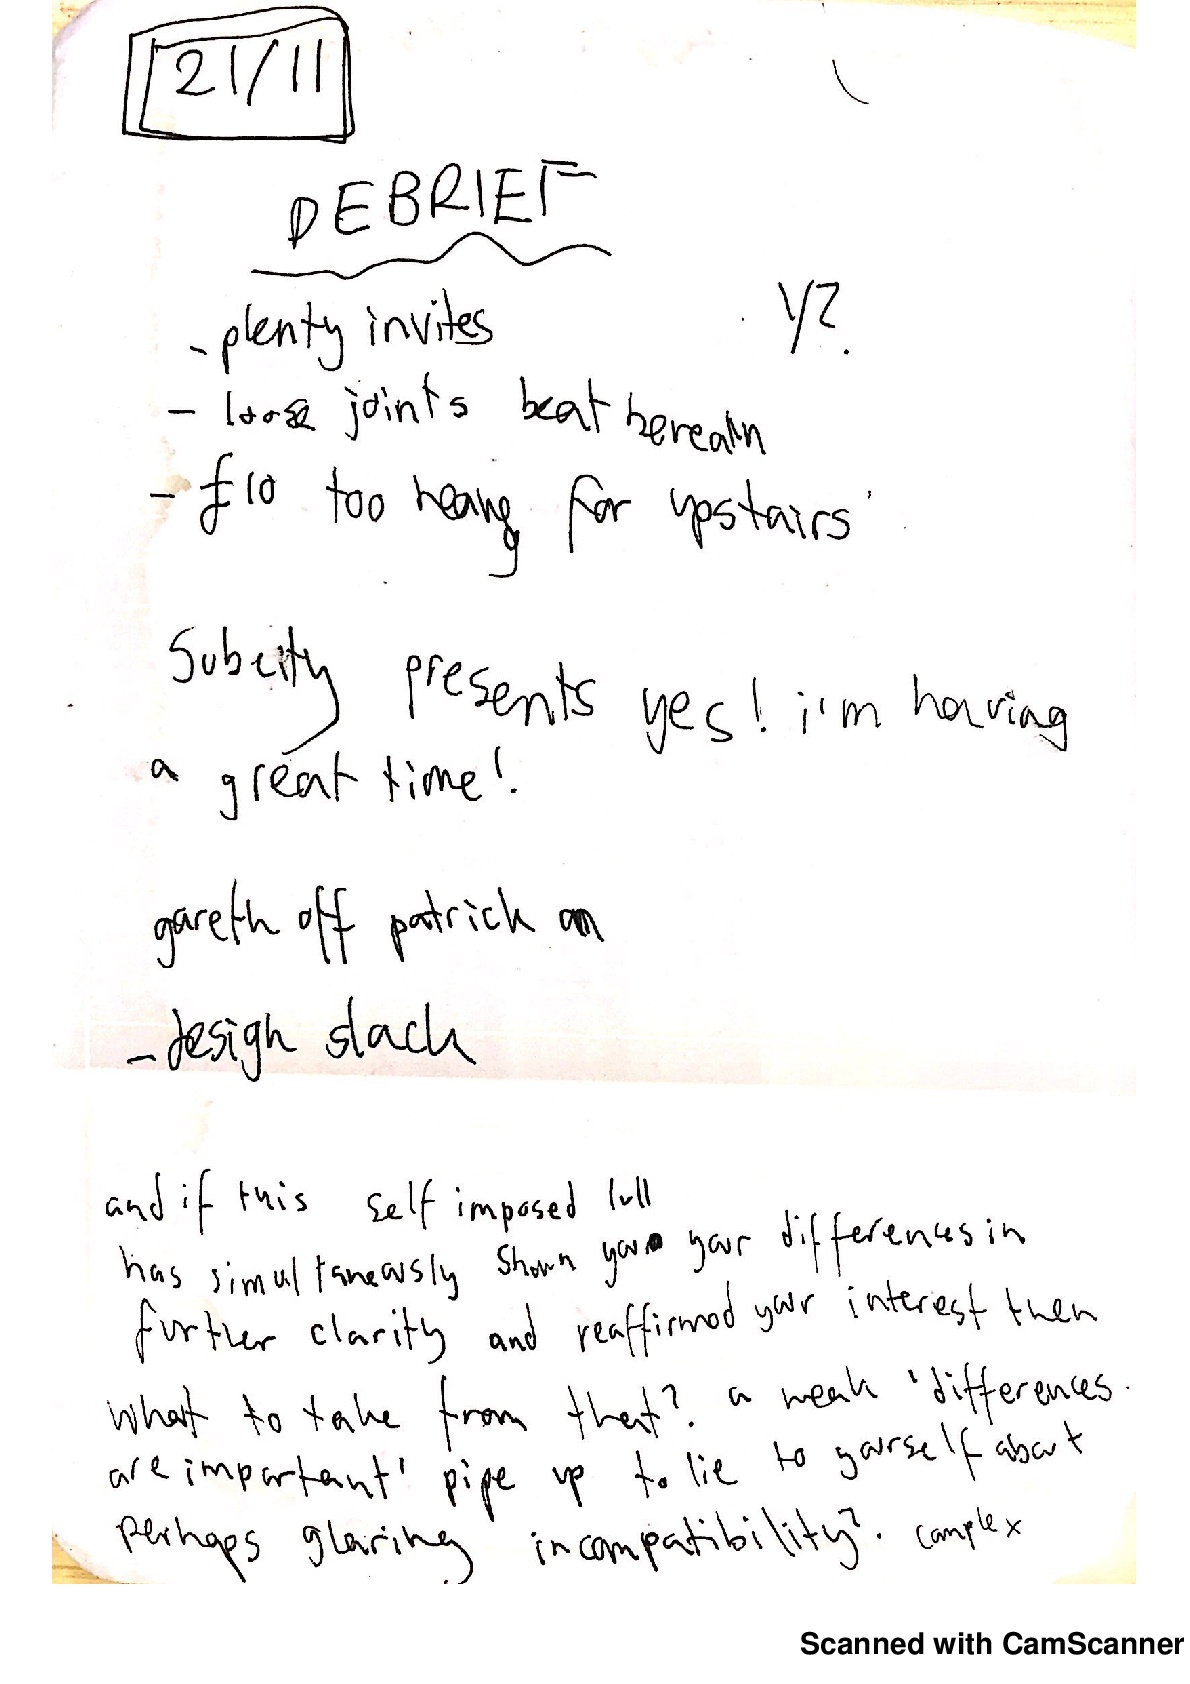 21/11
DEBRIEF
- plenty invites
Y?
- loose joints beat
- £10 too heavy for upstairs
Subcity presents yes! i'm having
a great time!
gareth off patrick on
- design slack
and if this self imposed lull
has simultaneously shown your differences in
further clarity and reaffirmed your interest then
what to take from that? a weak 'differences
are important' pipe up to lie to yourself about
perhaps glaring incompatibility? complex
Scanned with CamScanner